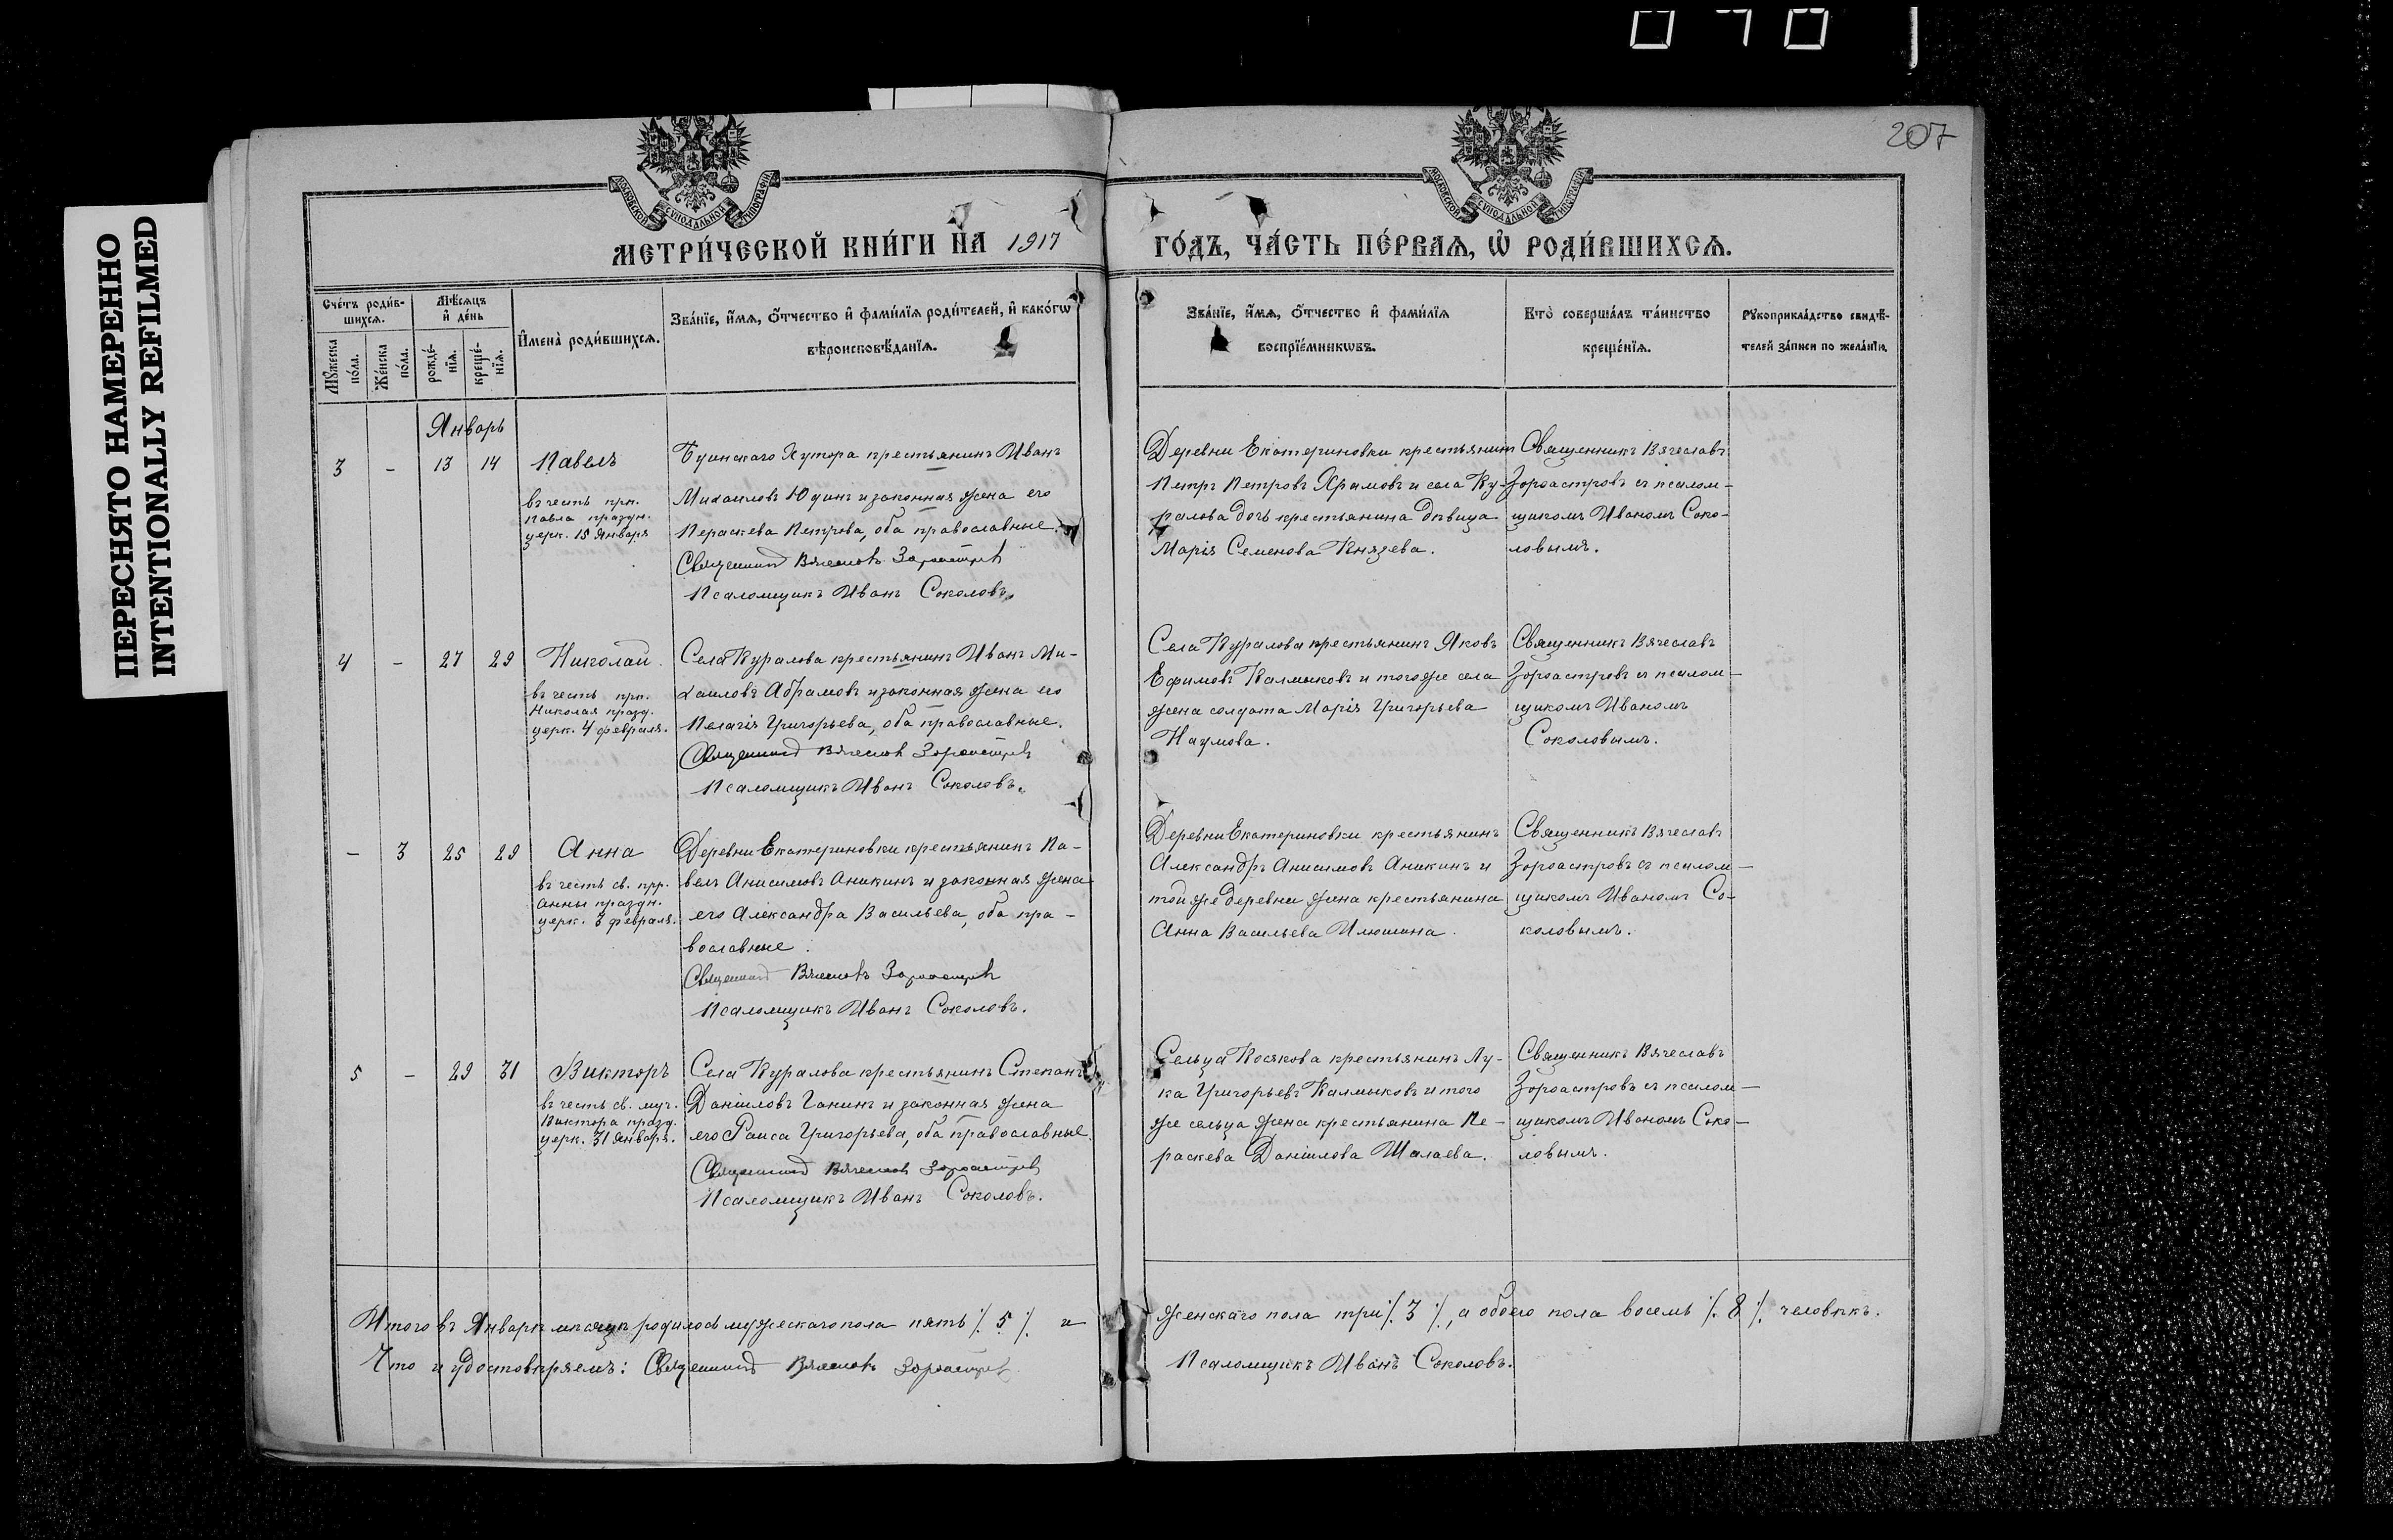 207
ПЕРЕСНЯТО НАМЕРЕННО
INTENTIONALLY REFILMED
МОСКОВСКОЙ СѴНОДАЛЬНОЙ ТИПОГРАФІИ
МОСКОВСКОЙ СѴНОДАЛЬНОЙ ТИПОГРАФІИ
МЕТРИ́ЧЕСКОЙ КНИ́ГИ НА 1917
ГО́ДЪ, ЧА́СТЬ ПЕ́РВАѦ, Ѡ РОДИ́ВШИХСѦ.
Сче́тъ роди́в-
шихсѧ.
Мѣ́сѧцъ
и де́нь
Мꙋ́жеска по́ла.
Же́нска по́ла.
рожде́-
нїѧ.
креще́-
нїѧ.
Имена̀ роди́вшихсѧ.
Зва́нїе, и́мѧ, о́тчество и фами́лїѧ роди́телей, и како́гѡ
вѣроисповѣ́данїѧ.
Зва́нїе, и́мѧ, о́тчество и фами́лїѧ
воспрїе́мникѡвъ.
Кто̀ соверша́лъ та́инство
креще́нїѧ.
Рꙋкоприкла́дство свидѣ́-
телей за́писи по жела́нїю.
Январь
3 - 13 14 Павелъ
въ честь прп.
Павла праздн.
церк. 15 Января
Хутора крестьянинъ Иванъ
Михаиловъ Юдинъ и законная жена его
Параскева Петрова, оба православные.
Священникъ Вячеславъ Зороастровъ
Псаломщикъ Иванъ Соколовъ.
Деревни Екатериновки крестьянинъ
Петръ Петровъ Храмовъ и села Ку-
ралова дочь крестьянина дѣвица
Марія Семенова Князева.
Священникъ Вячеславъ
Зороастровъ съ псалом-
щикомъ Иваномъ Соко-
ловымъ.
4 - 27 29 Николай
въ честь прп.
Николая празд.
церк. 4 февраля.
Села Куралова крестьянинъ Иванъ Ми-
хаиловъ Абрамовъ и законная жена его
Пелагія Григорьева, оба православные.
Священникъ Вячеславъ Зороастровъ
Псаломщикъ Иванъ Соколовъ.
Села Куралова крестьянинъ Яковъ
Ефимовъ Калмыковъ и того же села
жена солдата Марія Григорьева
Наумова.
Священникъ Вячеславъ
Зороастровъ съ псалом-
щикомъ Иваномъ
Соколовымъ.
- 3 25 29 Анна
въ честь св. прр.
Анны праздн.
церк. 3 февраля.
Деревни Екатериновки крестьянинъ Па-
велъ Анисимовъ Аникинъ и законная жена
его Александра Васильева, оба пра-
вославные.
Священникъ Вячеславъ Зороастровъ
Псаломщикъ Иванъ Соколовъ.
Деревни Екатериновки крестьянинъ
Александръ Анисимовъ Аникинъ и
той же деревни жена крестьянина
Анна Васильева Илюшина.
Священникъ Вячеславъ
Зороастровъ съ псалом-
щикомъ Иваномъ Со-
коловымъ.
5 - 29 31 Викторъ
въ честь св. муч.
Виктора празд.
церк. 31 Января.
Села Куралова крестьянинъ Степанъ
Даніиловъ Ганинъ и законная жена
его Раиса Григорьева, оба православные.
Священникъ Вячеславъ Зороастровъ
Псаломщикъ Иванъ Соколовъ.
Сельца Косякова крестьянинъ Лу-
ка Григорьевъ Калмыковъ и того
же сельца жена крестьянина Пе-
раскева Даніилова Шалаева.
Священникъ Вячеславъ
Зороастровъ съ псалом-
щикомъ Иваномъ Соко-
ловымъ.
Итого въ Январѣ мѣсяцѣ родилось мужескаго пола пять ٪ 5 ٪ и
женскаго пола три ٪ 3 ٪, а обоего пола восемь ٪ 8 ٪ человѣкъ.
Что и удостовѣряемъ: Священникъ Вячеславъ Зороастровъ
Псаломщикъ Иванъ Соколовъ.